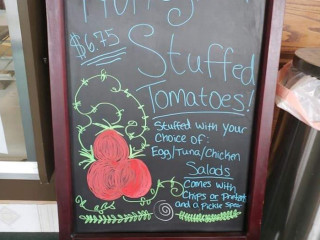 $6.75
Stuffed
Tomatoes!
Stuffed with your
choice of:
Egg/Tuna/Chicken
Salads
Comes with
Chips or Pretzels
and a Pickle Spear